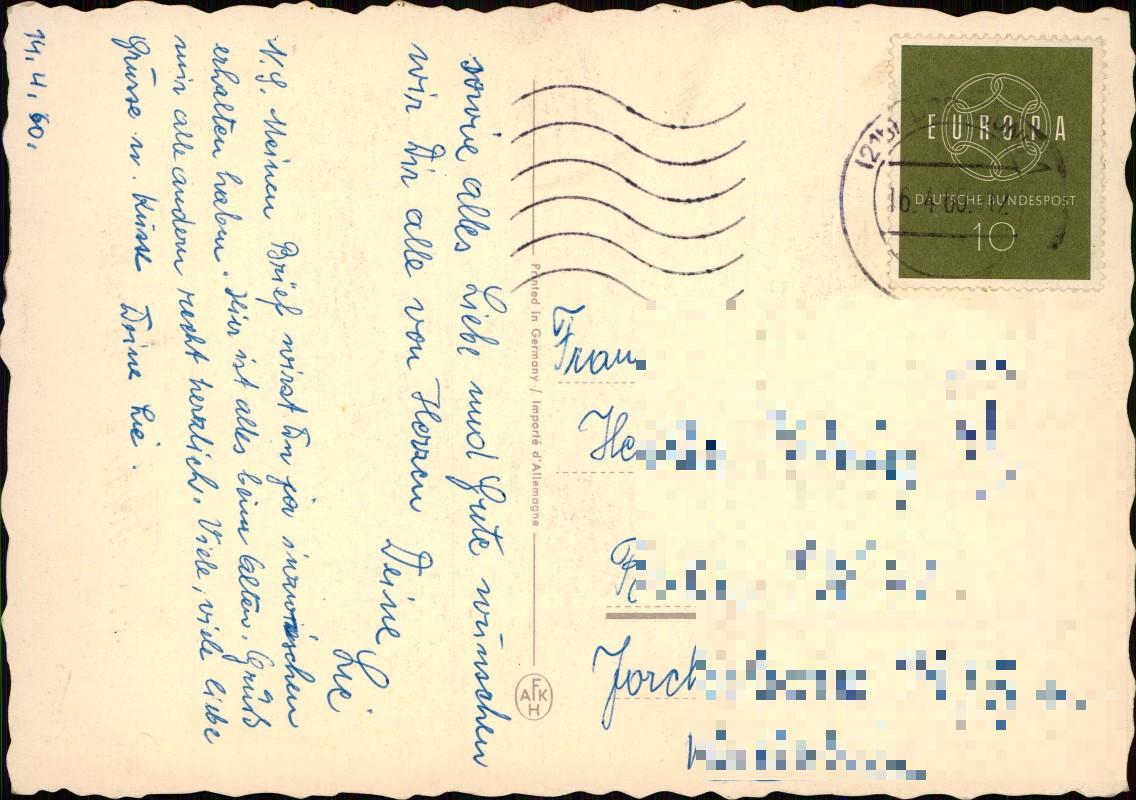 14.4.60.
sowie alles Liebe und Gute wünschen
wir Dir alle von Herzen Deine
Lie.
N.S. Meinen Brief wirst Du ja inzwischen
erhalten haben. Hier ist alles beim Alten. Grüß
mir alle andern recht herzlich. Viele, viele liebe
Grüsse u. Küsse Deine Lie.
Printed in Germany / Importé d'Allemagne
AFKH
EUROPA
DEUTSCHE BUNDESPOST
10
16.4.60.-12
Frau